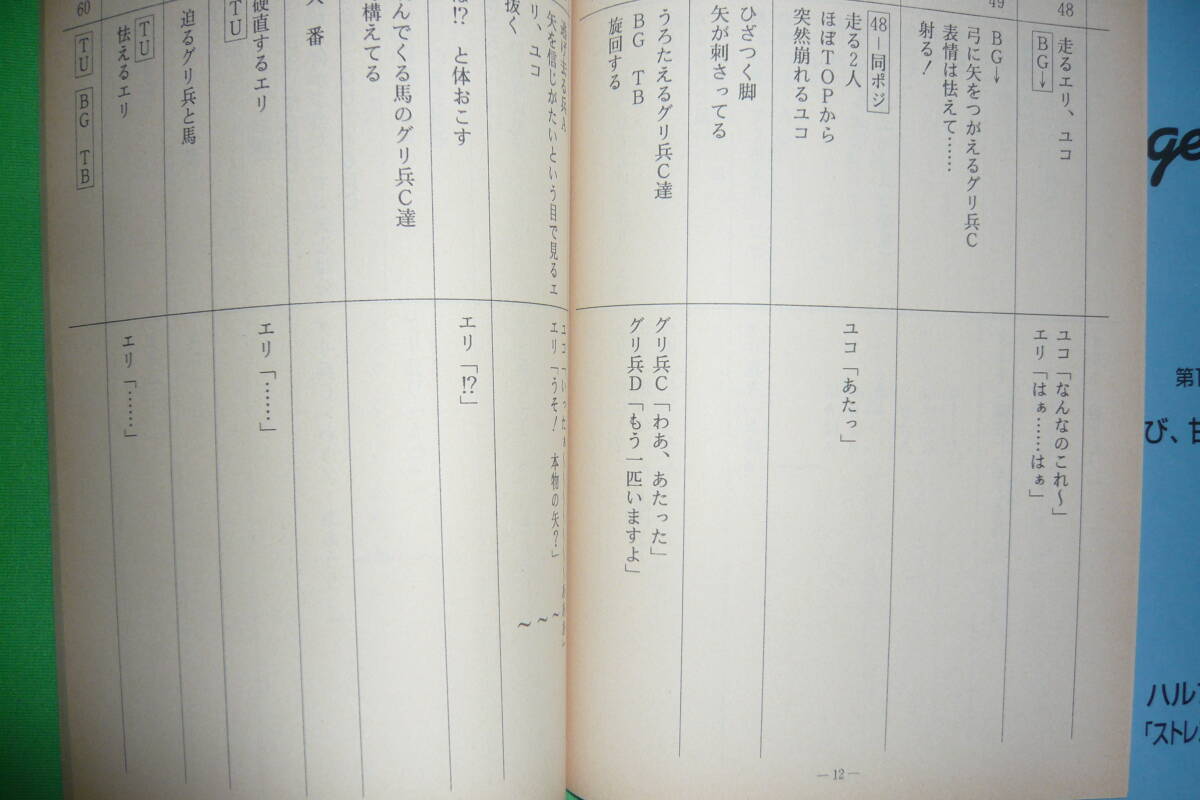 48
走るエリ、ユコ
BG↓
ユコ「なんなのこれ〜」
エリ「はぁ……はぁ」
49
BG↓
弓に矢をつがえるグリ兵C
表情は怯えて……
射る!
48−同ポジ
走る2人
ほぼTOPから
突然崩れるユコ
ユコ「あたっ」
ひざつく脚
矢が刺さってる
うろたえるグリ兵C達
BG TB
旋回する
グリ兵C「わあ、あたった」
グリ兵D「もう一匹いますよ」
—12—
矢を信じがたいという目で見るエ
リ、ユコ
抜く
エリ「うそ! 本物の矢?」
〜〜〜
は!? と体おこす
エリ「!?」
んでくる馬のグリ兵C達
構えてる
番
硬直するエリ
TU
エリ「……」
迫るグリ兵と馬
TU
怯えるエリ
エリ「……」
60
TU BG TB
ge
第1
び、甘
ハル
「ストレ